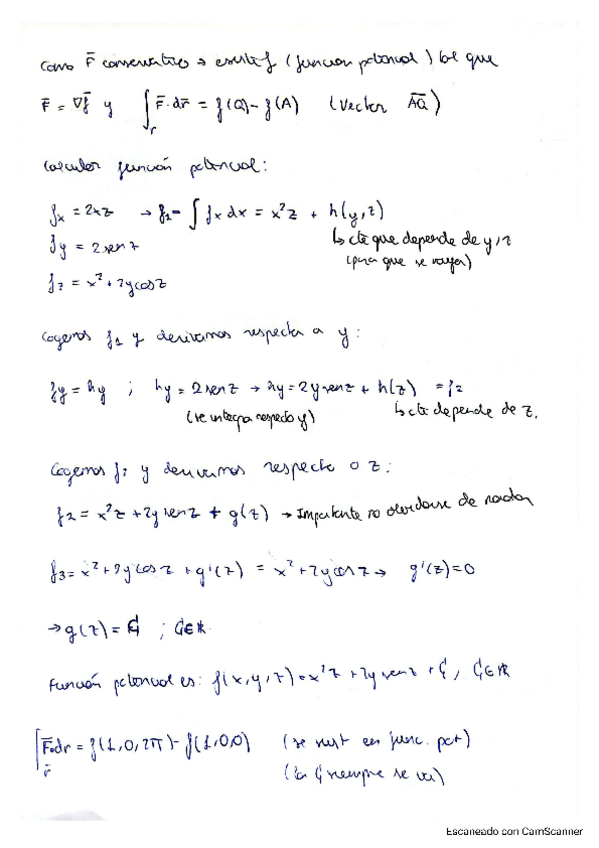 Como F̄ conservativo → existe f (función potencial) tal que
F̄ = ∇f y ∫_Γ F̄·dr̄ = f(Q) - f(A) (Vector AQ)
Calcular función potencial:
fx = 2xz → f1 = ∫ fx dx = x²z + h(y,z)
fy = 2 sen z ↳ cte que depende de y, z
(para que se vayan)
fz = x² + 2y cos z
Cogemos f1 y derivamos respecto a y:
fy = hy ; hy = 2 sen z → hy = 2y sen z + h(z) = f2
(se integra respecto y) ↳ cte depende de z.
Cogemos f2 y derivamos respecto a z:
f2 = x²z + 2y sen z + g(z) → Importante no olvidarse de nada
f3 = x² + 2y cos z + g'(z) = x² + 2y cos z → g'(z) = 0
→ g(z) = C ; C ∈ ℝ
Función potencial es: f(x,y,z) = x²z + 2y sen z + C, C ∈ ℝ
∫_Γ F̄·dr = f(1,0,2π) - f(1,0,0) (se sust en func. pot)
(la C siempre se va)
Escaneado con CamScanner